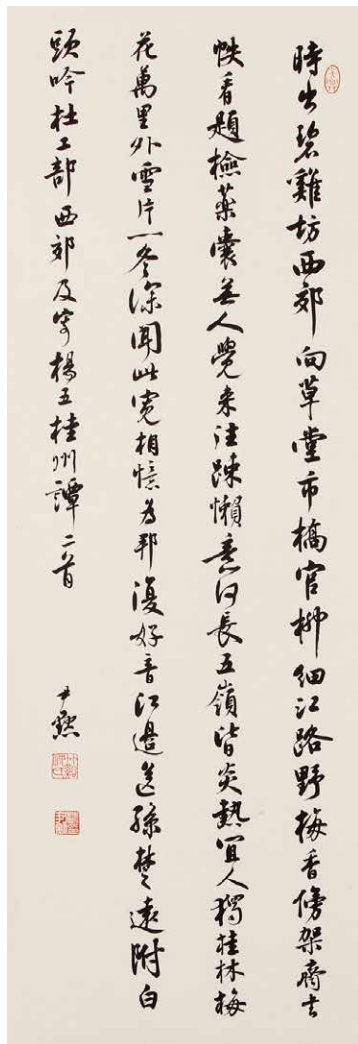 時出碧雞坊西郊向草堂市橋官柳細江路野梅香傍架齊書
帙看題檢藥囊無人覺来往踈懶意何長五嶺皆炎熱宜人獨桂林梅
花萬里外雪片一冬深聞此寬相憶為邦復好音江邊送孫楚遠附白
頭吟杜工部西郊及寄楊五桂州譚二首
尹默